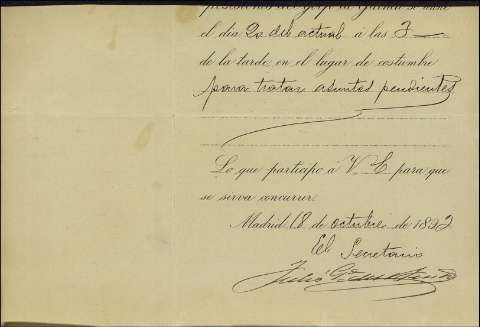 el día 20 del actual á las 3
de la tarde, en el lugar de costumbre
para tratar asuntos pendientes
Lo que participo á V. E. para que
se sirva concurrir.
Madrid 18 de octubre de 1892
El Secretario
Julio